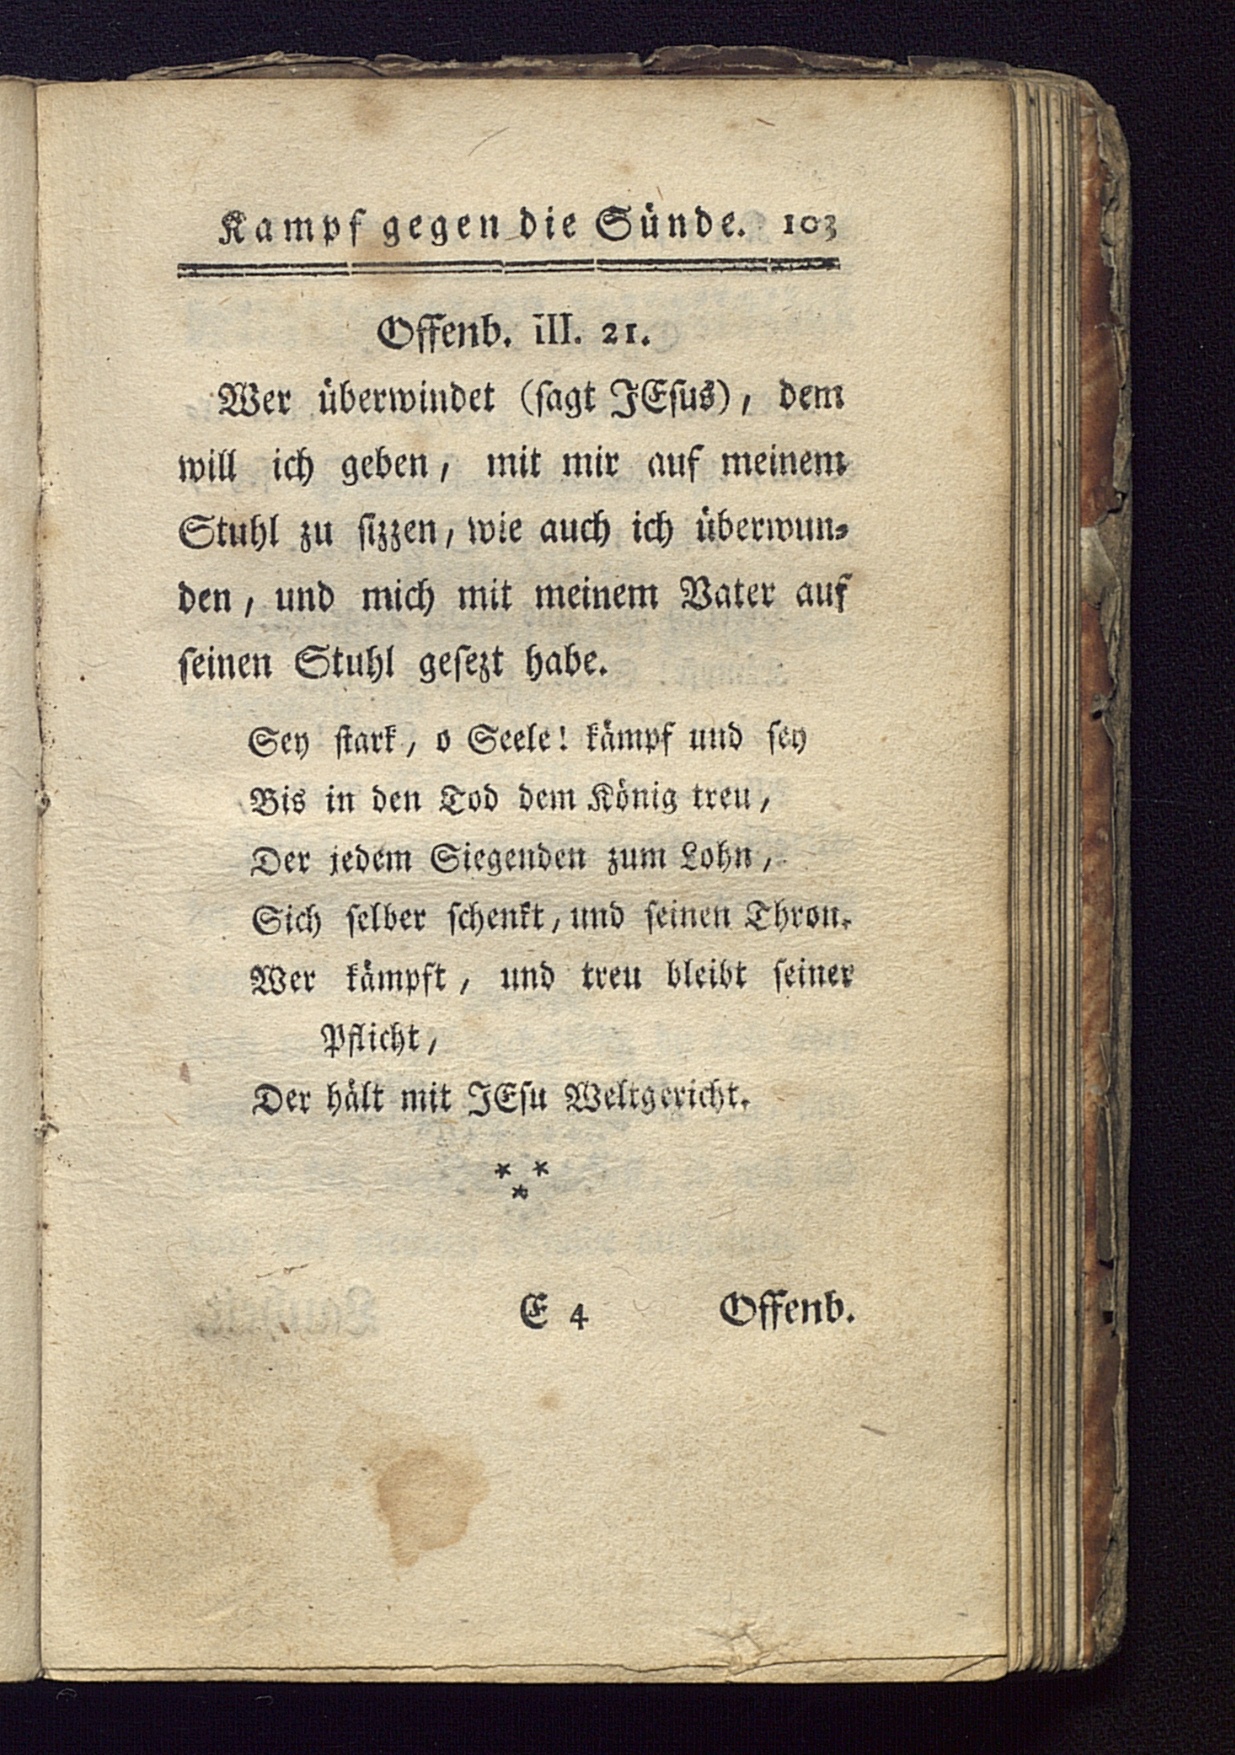 Kampf gegen die Sünde. 103
Offenb. III. 21.
Wer überwindet (sagt JEsus), dem
will ich geben, mit mir auf meinem
Stuhl zu sizzen, wie auch ich überwun-
den, und mich mit meinem Vater auf
seinen Stuhl gesezt habe.
Sey stark, o Seele! kämpf und sey
Bis in den Tod dem König treu,
Der jedem Siegenden zum Lohn,
Sich selber schenkt, und seinen Thron.
Wer kämpft, und treu bleibt seiner
Pflicht,
Der hält mit JEsu Weltgericht.
* * *
E 4 Offenb.